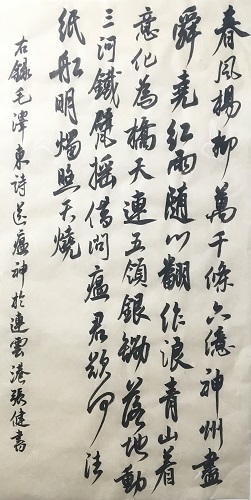 春风杨柳萬千條六億神州盡
舜堯红雨随心翻作浪青山着
意化為橋天連五領銀鋤落地動
三河鐵臂摇借问瘟君欲何往
纸船明燭照天燒
右錄毛澤東詩送瘟神於連雲港張健書